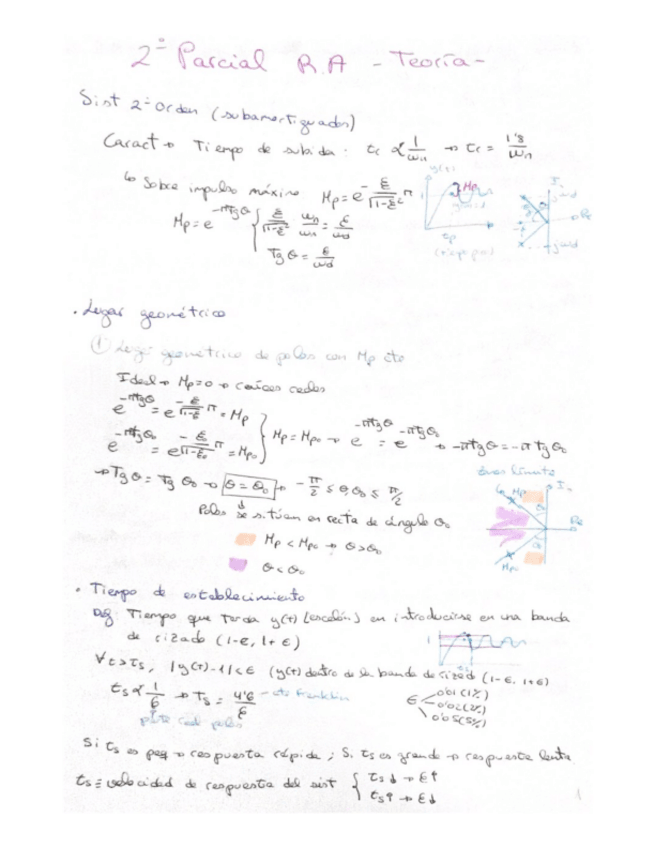 2º Parcial R.A - Teoría -
Sist 2º orden (subamortiguados)
Caract → Tiempo de subida: tr ∝ 1/ωn → tr = 1'8/ωn
↳ Sobre impulso máximo Mp = e^(-ξ/√(1-ξ²) π)
y(t)
Mp
Mp = e^(-πtgθ) { ξ/√(1-ξ²) ωn/ωn = σ/ωd
Tg θ = σ/ωd
tp
(tiempo pico)
Im
Re
jωd
• Lugar geométrico
① Lugar geométrico de polos con Mp cte
Ideal → Mp=0 →
e^(-πtgθ) = e^(-ξ/√(1-ξ²) π) = Mp
e^(-πtgθ₀) = e^(-ξ₀/√(1-ξ₀²) π) = Mp₀
} Mp = Mp₀ → e^(-πtgθ) = e^(-πtgθ₀) → -πtgθ = -π tgθ₀
→ Tg θ = Tg θ₀ → θ = θ₀ → -π/2 ≤ θ, θ₀ ≤ π/2
Polos se sitúan en recta de ángulo θ₀
Mp < Mp₀ → θ > θ₀
θ < θ₀
límite
Im
Mp
Re
Mp₀
• Tiempo de establecimiento
Def: Tiempo que tarda y(t) [escalón] en introducirse en una banda
de rizado (1-ε, 1+ε)
∀ t > ts, |y(t)-1| < ε (y(t) dentro de la banda de rizad (1-ε, 1+ε)
ts ∝ 1/σ → Ts = 4'6/σ - cte franklin
ε 0'01 (1%)
0'02 (2%)
0'05 (5%)
pte real polos
Si ts es peq → respuesta rápida; Si ts es grande → respuesta lenta
ts ≡ velocidad de respuesta del sist { ts↓ → σ↑
ts↑ → σ↓
1